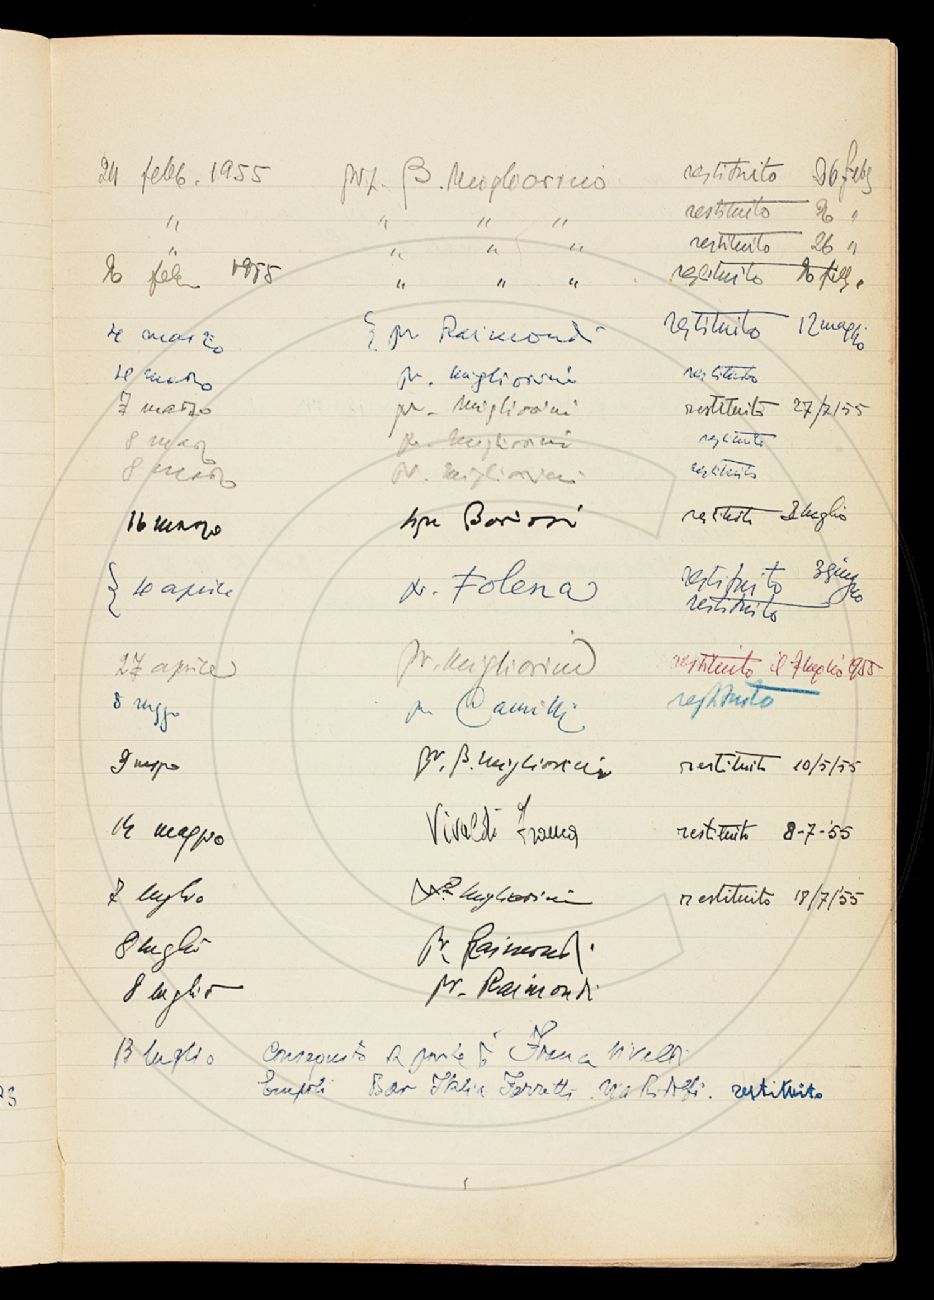 24 febb. 1955 prof. B. Migliorini restituito 26 febb
" " " " restituito 26 "
" " " " restituito 26 "
26 febb 1955 " " " restituito 26 febb.
4 marzo { pr Raimondi restituito 12 maggio
4 marzo pr. Migliorini restituito
7 marzo pr. Migliorini restituito 27/7/55
8 marzo pr. Migliorini restituito
8 marzo pr. Migliorini restituito
16 marzo restituito luglio
{ aprile dr. Folena restituito 3 giugno
restituito
27 aprile pr. Migliorini restituito il 7 luglio 1955
8 maggio Camilli restituito
9 maggio pr. B. Migliorini restituito 10/5/55
14 maggio Vivaldi Franca restituito 8-7-55
7 luglio Migliorini restituito 18/7/55
8 luglio pr. Raimondi
8 luglio pr. Raimondi
13 luglio Consegnato da parte di Franca Vivaldi
Empoli Bar Italia Ferretti via Ridolfi. restituito